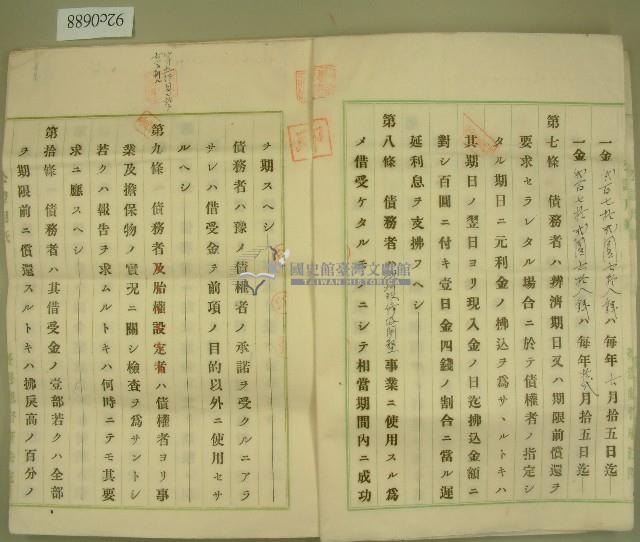 92c0688
一金貳百七拾貳圓七拾八錢ハ毎年六月拾五日迄
一金貳百七拾貳圓七拾八錢ハ毎年拾貳月拾五日迄
第七條 債務者ハ辨濟期日又ハ期限前償還ヲ
要求セラレタル場合ニ於テ債權者ノ指定シ
タル期日ニ元利金ノ拂込ヲ爲サヽルトキハ
其期日ノ翌日ヨリ現入金ノ日迄拂込金額ニ
對シ百圓ニ付キ壹日金四錢ノ割合ニ當ル遲
延利息ヲ支拂フヘシ
第八條 債務者ハ 事業ニ使用スル爲
メ借受ケタルモノニシテ相當期間內ニ成功
ヲ期スヘシ
債務者ハ豫メ債權者ノ承諾ヲ受クルニアラ
サレハ借受金ヲ前項ノ目的以外ニ使用セサ
ルヘシ
第九條 債務者及胎權設定者ハ債權者ヨリ事
業及擔保物ノ實況ニ關シ檢查ヲ爲サントシ
若クハ報告ヲ求ムルトキハ何時ニテモ其要
求ニ應スヘシ
第拾條 債務者ハ其借受金ノ壹部若クハ全部
ヲ期限前ニ償還スルトキハ拂戾高ノ百分ノ
國史館臺灣文獻館
TAIWAN HISTORICA